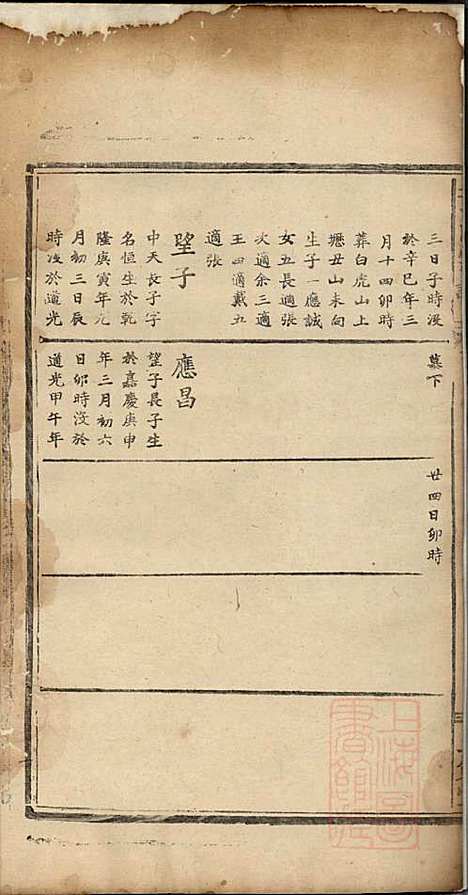 三日子時沒
於辛巳年三
月十四卯時
葬白虎山上
壢丑山未向
生子一應誠
女五長適張
次適余三適
王四適戴五
適張
望子
中天長子字
名恒生於乾
隆庚寅年九
月初三日辰
時沒於道光
墓下
應昌
望子長子生
於嘉慶庚申
年三月初六
日卯時沒於
道光甲午年
廿四日卯時
上海圖
書館藏